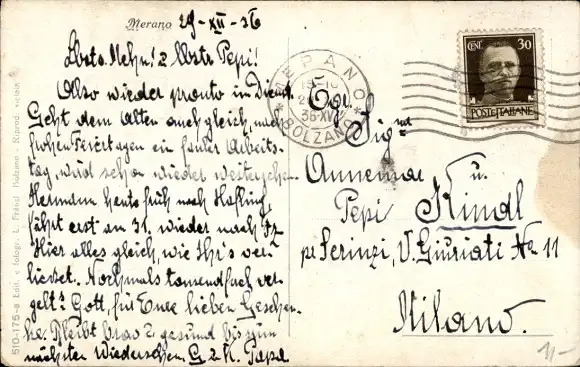 Merano 29-XII-36
Lbste. Mehn! 2 lbstr Pepi!
Also wieder pronto in Dienst
Geht dem Alten auch gleich, nach
frohen Feiertagen ein fauler Arbeits-
tag, wird schon wieder weitergehen.
Hermann heute früh nach Hafling,
fährt erst an 31. wieder nach
Hier alles gleich, wie Ihr's ver-
liesset. Nochmals tausendfach ver-
gelt's Gott, für Eure lieben Geschen-
ke. Bleibt brav & gesund bis zum
nächsten Wiedersehen. G. 2 K. Papa
MERANO
36-XV
BOLZANO
CENT. 30
POSTE ITALIANE
Egr.
Sig.na
Annemar u.
Pepi Kindl
pr Serinzi, V. Giuriati No 11
Milano.
11-
510-175-a Edit. e fotogr. L. Fränzl Bolzano - Riprod. vietata